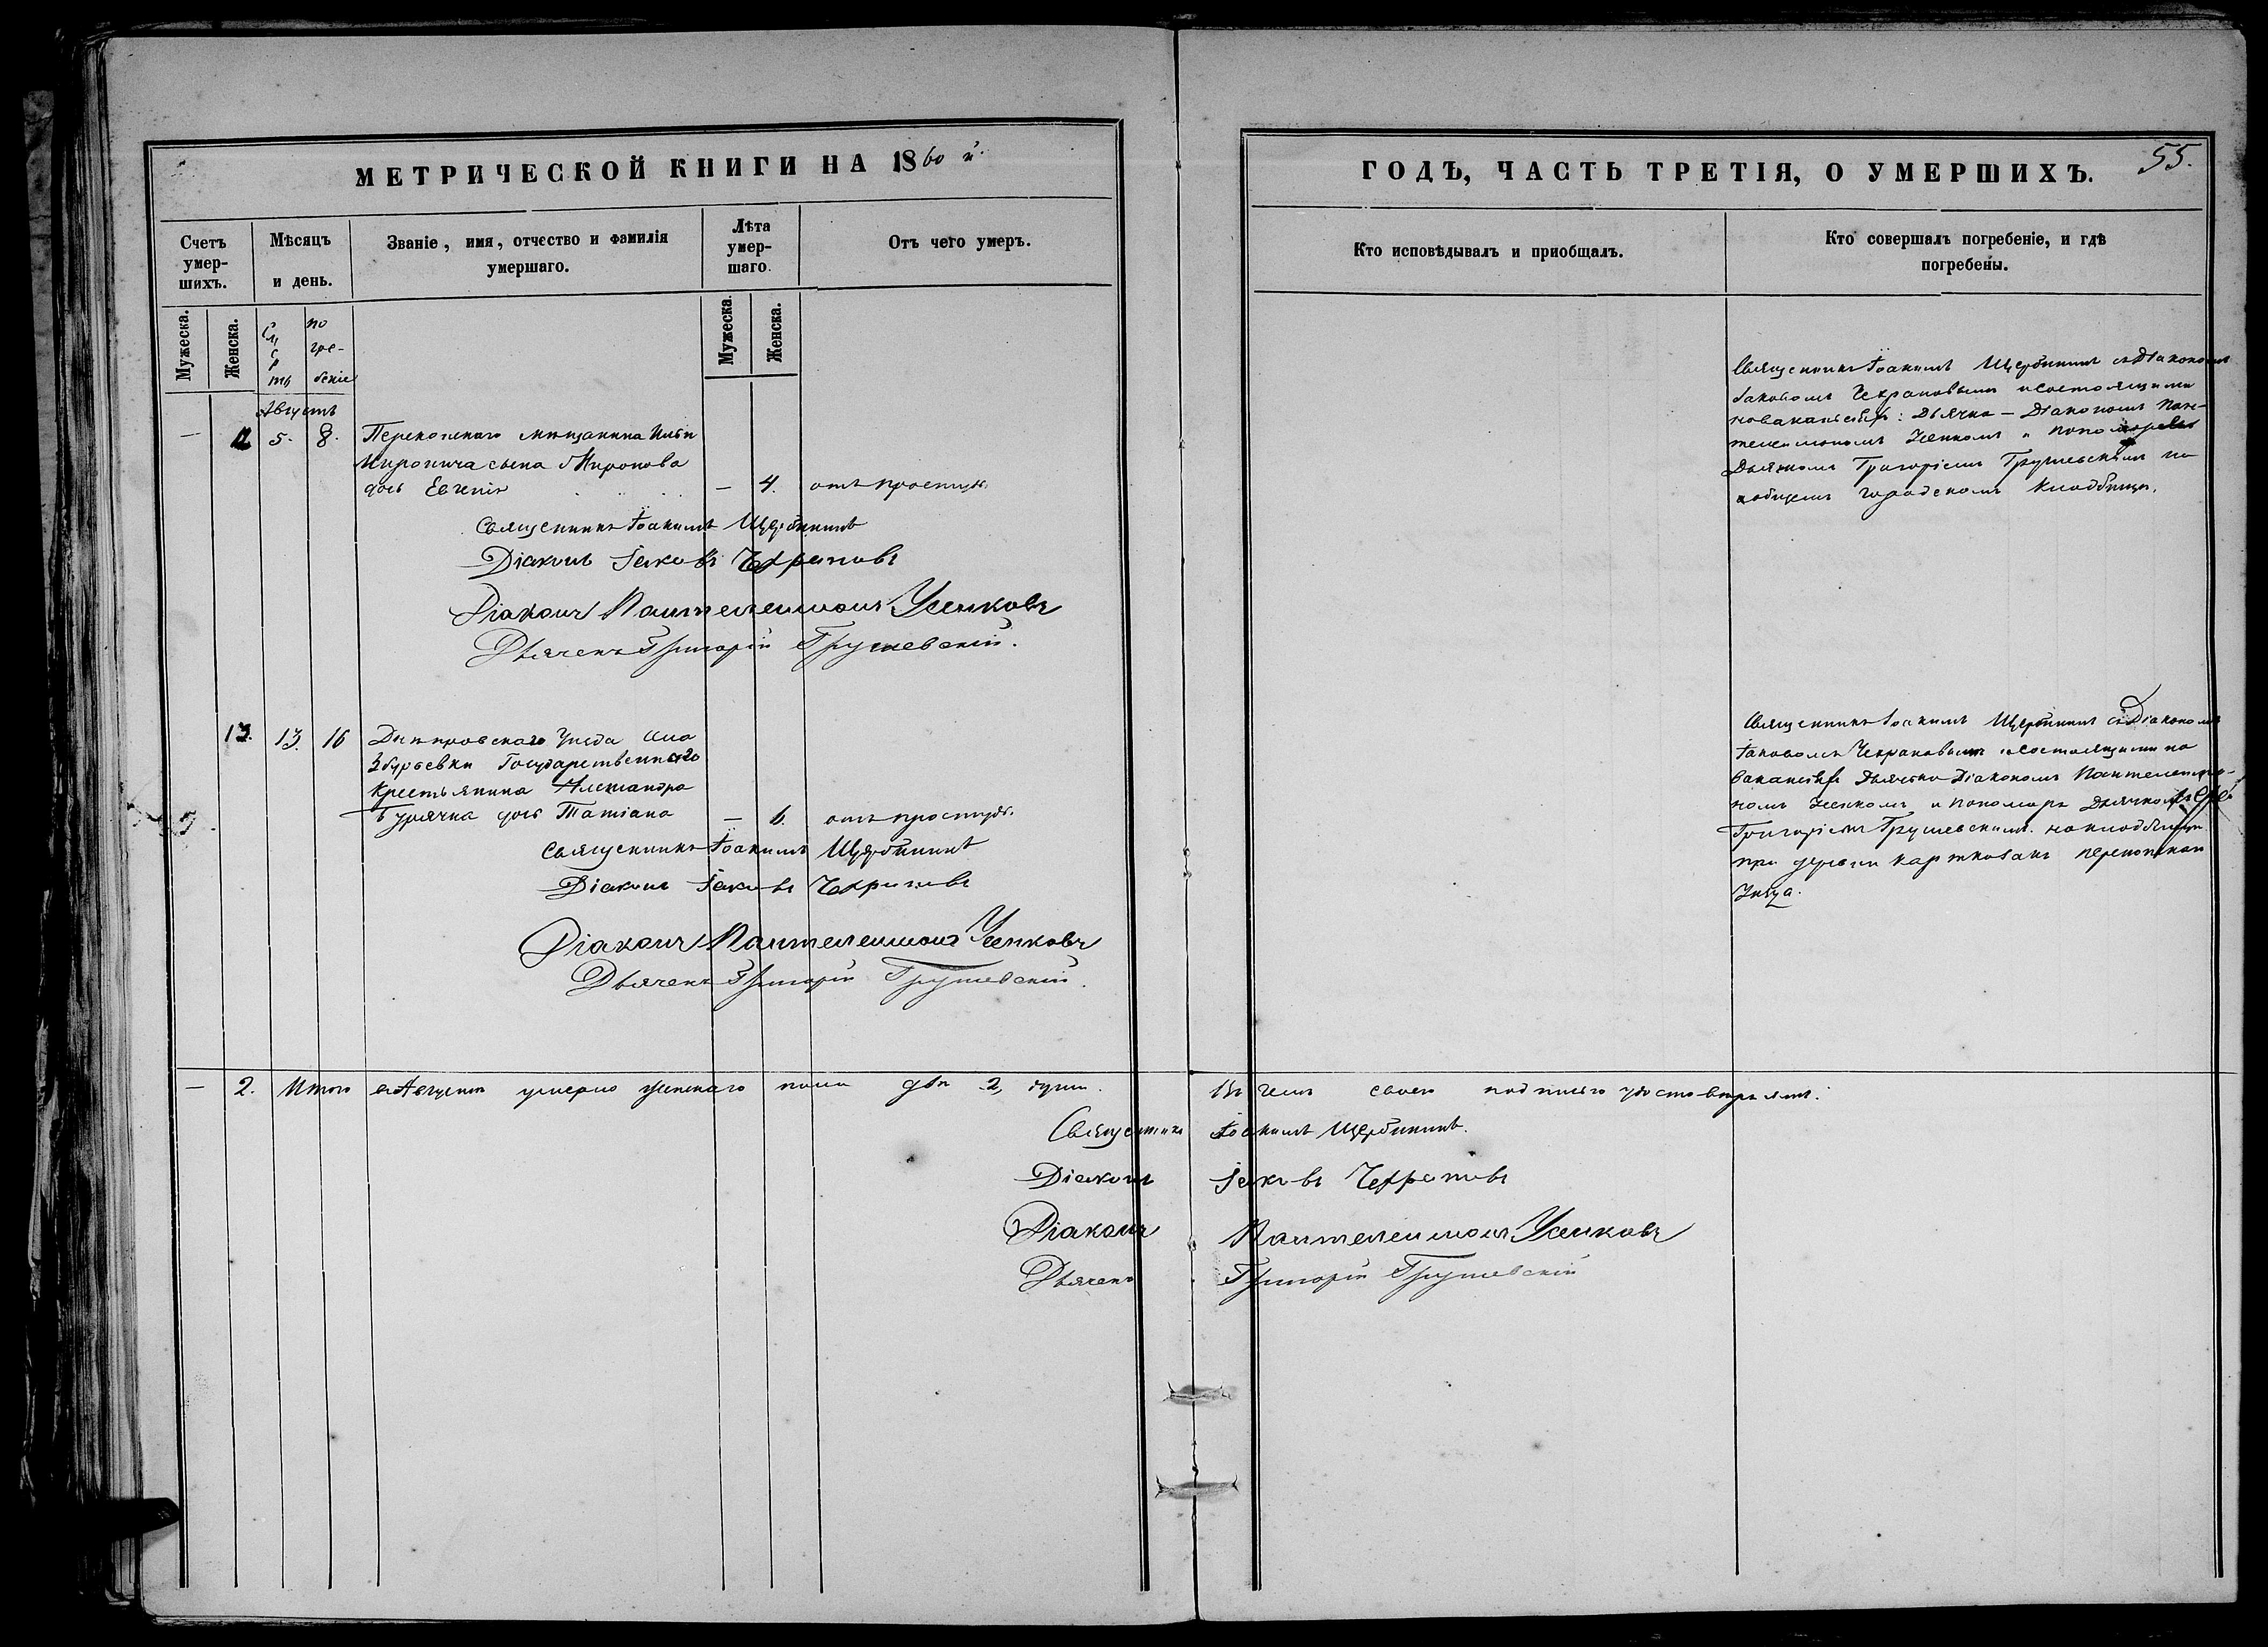 МЕТРИЧЕСКОЙ КНИГИ НА 1860 й.
Счетъ умер-шихъ.
Мѣсяцъ и день.
Званіе, имя, отчество и фамилія умершаго.
Лѣта умер-шаго.
Отъ чего умеръ.
Мужеска.
Женска.
Смерть
погре-
бенiе
Мужеска.
Женска.
Августъ
— 12 5. 8. Перекопскаго мѣщанина Ильи
Миронича сына Миронова
дочь Евгенія — 4. отъ простуды.
Священникъ Іоакимъ Щербининъ
Діаконъ Іаковъ Чехрановъ
Діаконъ Пантелеимонъ Усенковъ
Дьячекъ Григорій Грушевскій.
13. 13. 16 Днѣпровскаго Уѣзда села
Збурьевки Государственнаго
Крестьянина Александра
Бурячка дочь Татіана — 6. отъ простуды.
Священникъ Іоакимъ Щербининъ
Діаконъ Іаковъ Чехрановъ
Діаконъ Пантелеимонъ Усенковъ
Дьячекъ Григорій Грушевскій.
— 2. Итого въ Августѣ умерло женскаго пола двѣ 2, души.
Священникъ
Діаконъ
Діаконъ
Дьячекъ
ГОДЪ, ЧАСТЬ ТРЕТІЯ, О УМЕРШИХЪ.
55.
Кто исповѣдывалъ и пріобщалъ.
Кто совершалъ погребеніе, и гдѣ погребены.
Священникъ Іоакимъ Щербининъ съ Діакономъ
Іаковомъ Чехрановымъ и состоящими
на вакансіяхъ: Дьячка — Діакономъ Пан-
телеимономъ Усенкомъ и Пономаря
Дьячкомъ Григоріемъ Грушевскимъ на
общемъ городскомъ кладбищѣ.
Священникъ Іоакимъ Щербининъ съ Діакономъ
Іаковомъ Чехрановымъ и состоящими на
вакансіяхъ Дьячка Діакономъ Пантелеимо-
номъ Усенкомъ и пономаря Дьячкомъ
Григоріемъ Грушевскимъ на кладбищѣ
при деревни Перекопскаго
Уѣзда.
Въ чемъ своею подписью удостовѣряемъ:
Іоакимъ Щербининъ.
Іаковъ Чехрановъ
Пантелеимонъ Усенковъ
Григорій Грушевскій